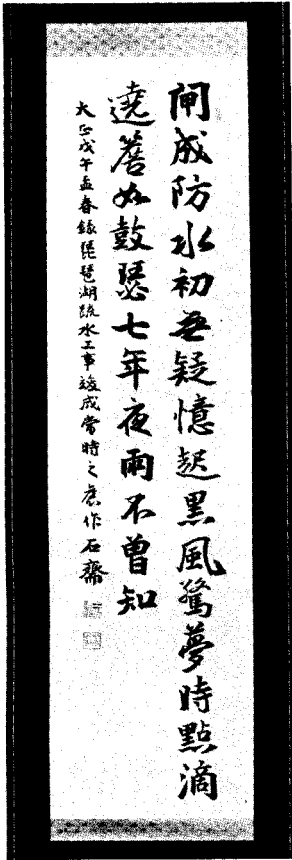 閘成防水初無疑憶起黒風驚夢時點滴
遶簷如鼓瑟七年夜雨不曾知
大正戊午孟春録琵琶湖疏水工事竣成當時之舊作石齋